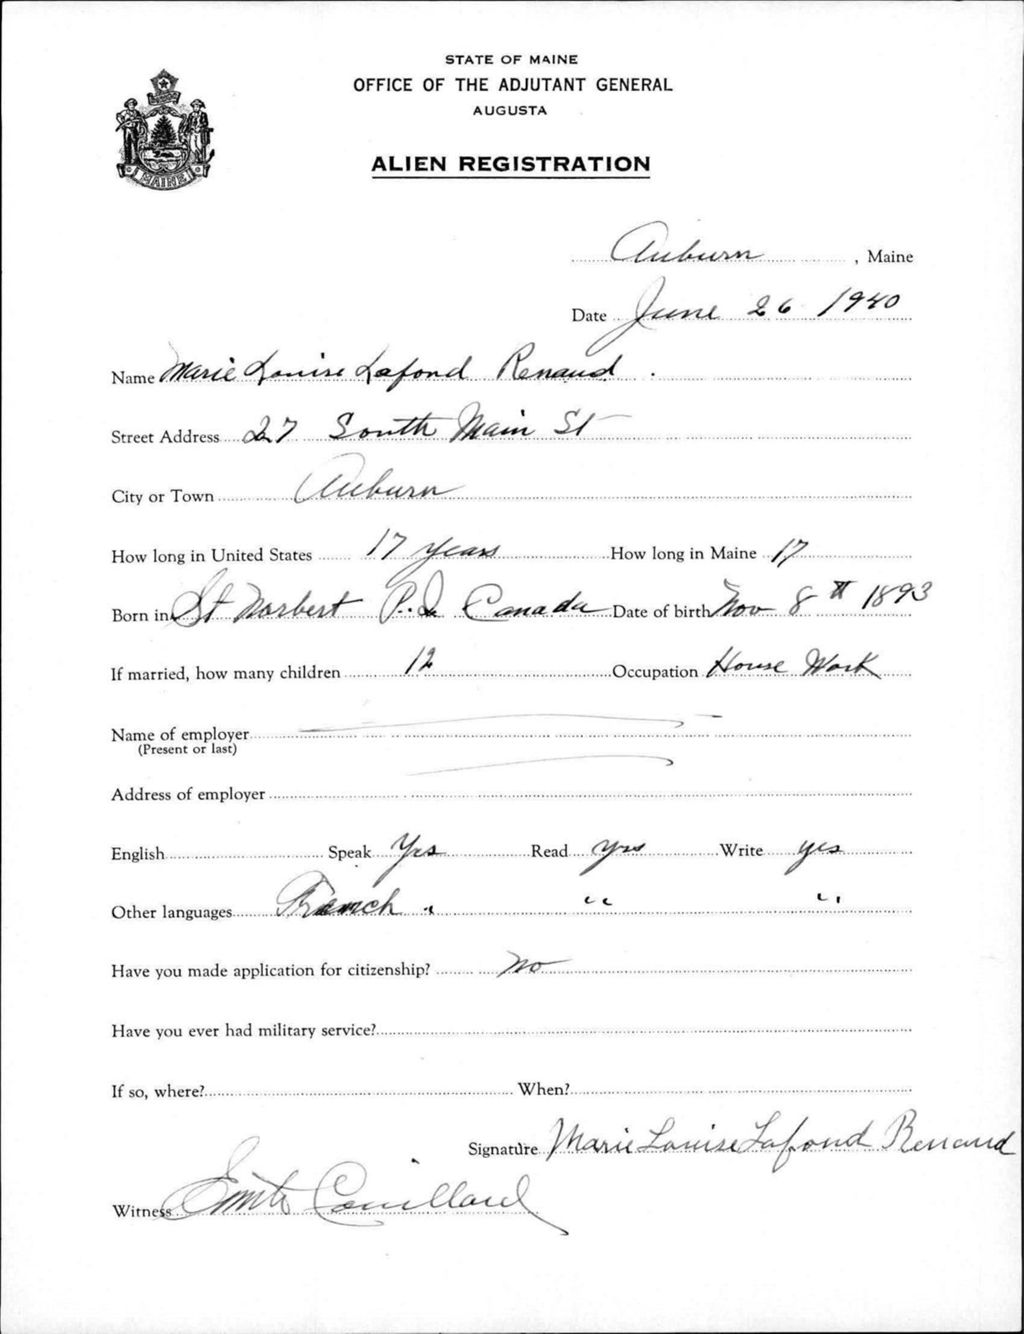 STATE OF MAINE
OFFICE OF THE ADJUTANT GENERAL
AUGUSTA
ALIEN REGISTRATION
MAINE
Auburn, Maine
Date June 26 1940
Name Marie Louise Lafond Renaud.
Street Address 27 South Main St
City or Town Auburn
How long in United States 17 years How long in Maine 17
Born in St Norbert P.Q Canada Date of birth Nov 8th 1893
If married, how many children 12 Occupation House Work
Name of employer
(Present or last)
Address of employer
English Speak Yes Read yes Write yes
Other languages French " " "
Have you made application for citizenship? no
Have you ever had military service?
If so, where? When?
Signature Marie Louise Lafond Renaud
Witness Couillard